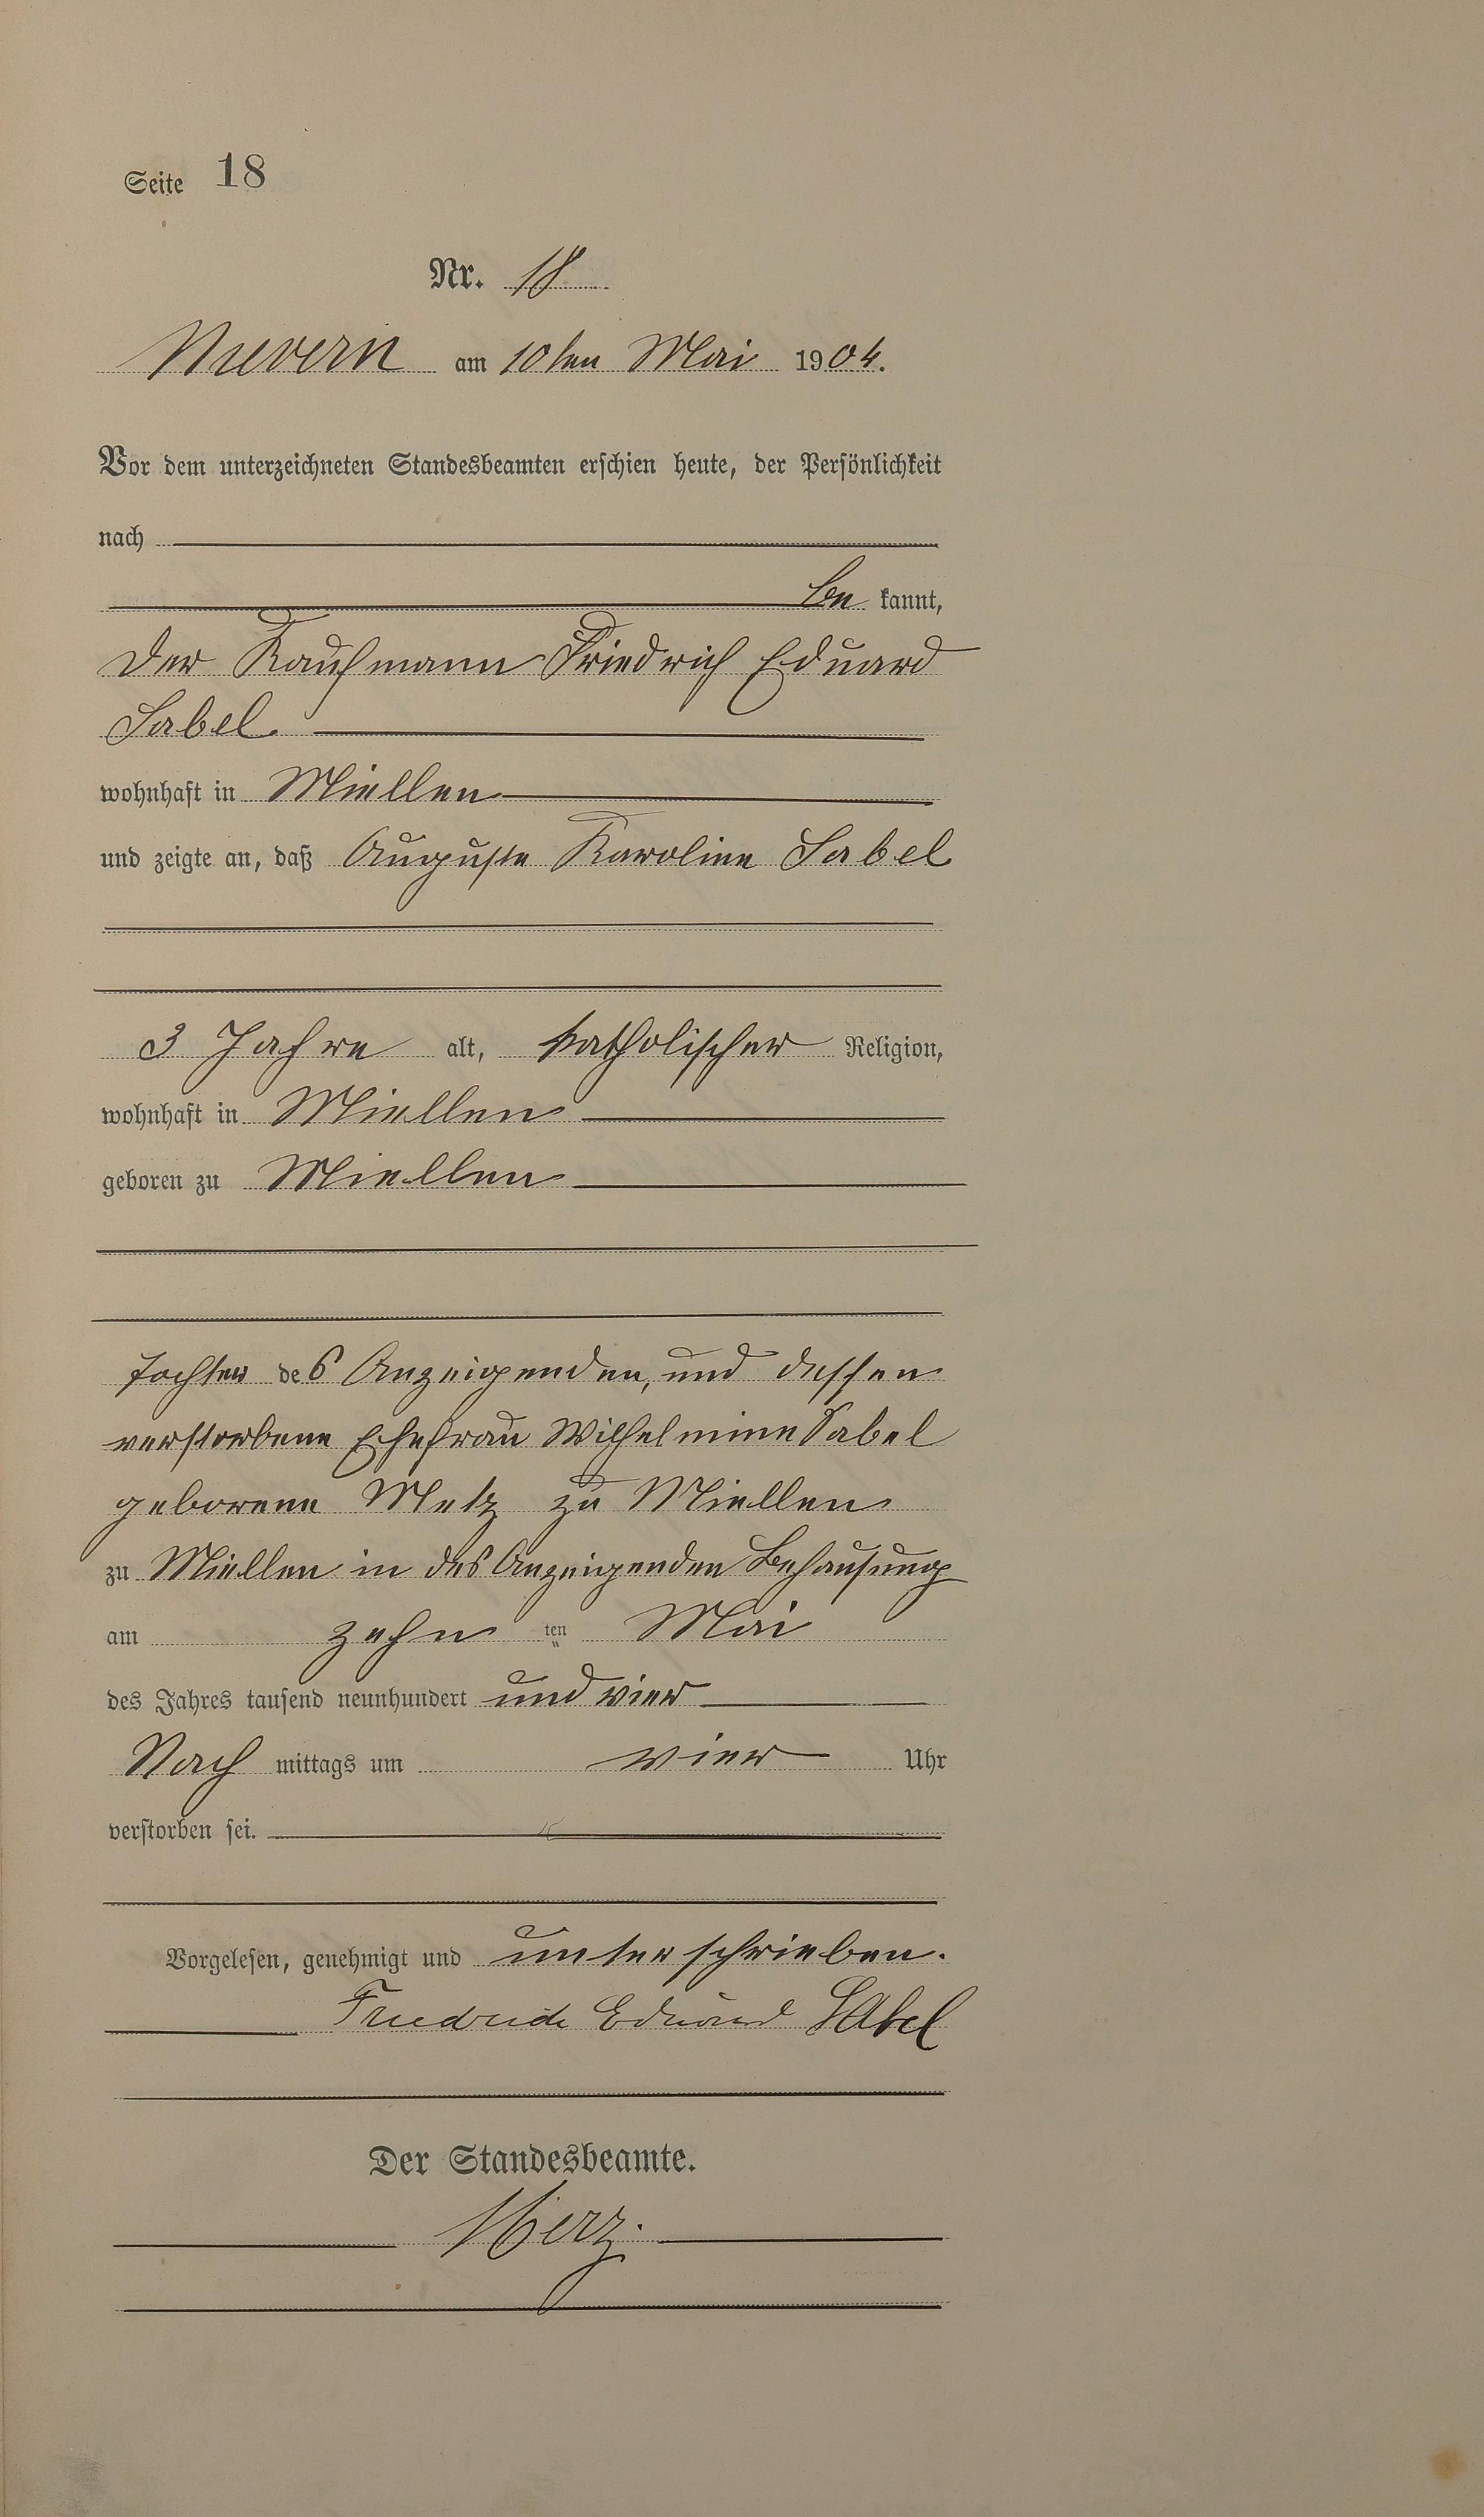 Seite 18
Nr. 18
Nievern am 10ten Mai 1904.
Vor dem unterzeichneten Standesbeamten erschien heute, der Persönlichkeit
nach
be kannt,
der Kaufmann Friedrich Eduard
Sabel
wohnhaft in Miellen
und zeigte an, daß Auguste Karoline Sabel
3 Jahre alt, katholischer Religion,
wohnhaft in Miellen
geboren zu Miellen
Tochter des Anzeigenden, und dessen
verstorbene Ehefrau Wilhelmine Sabel
geborene Metz zu Miellen
zu Miellen in des Anzeigenden Behausung
am zehn ten Mai
des Jahres tausend neunhundert und vier
Nach mittags um vier Uhr
verstorben sei.
Vorgelesen, genehmigt und unterschrieben.
Friedrich Eduard Sabel
Der Standesbeamte.